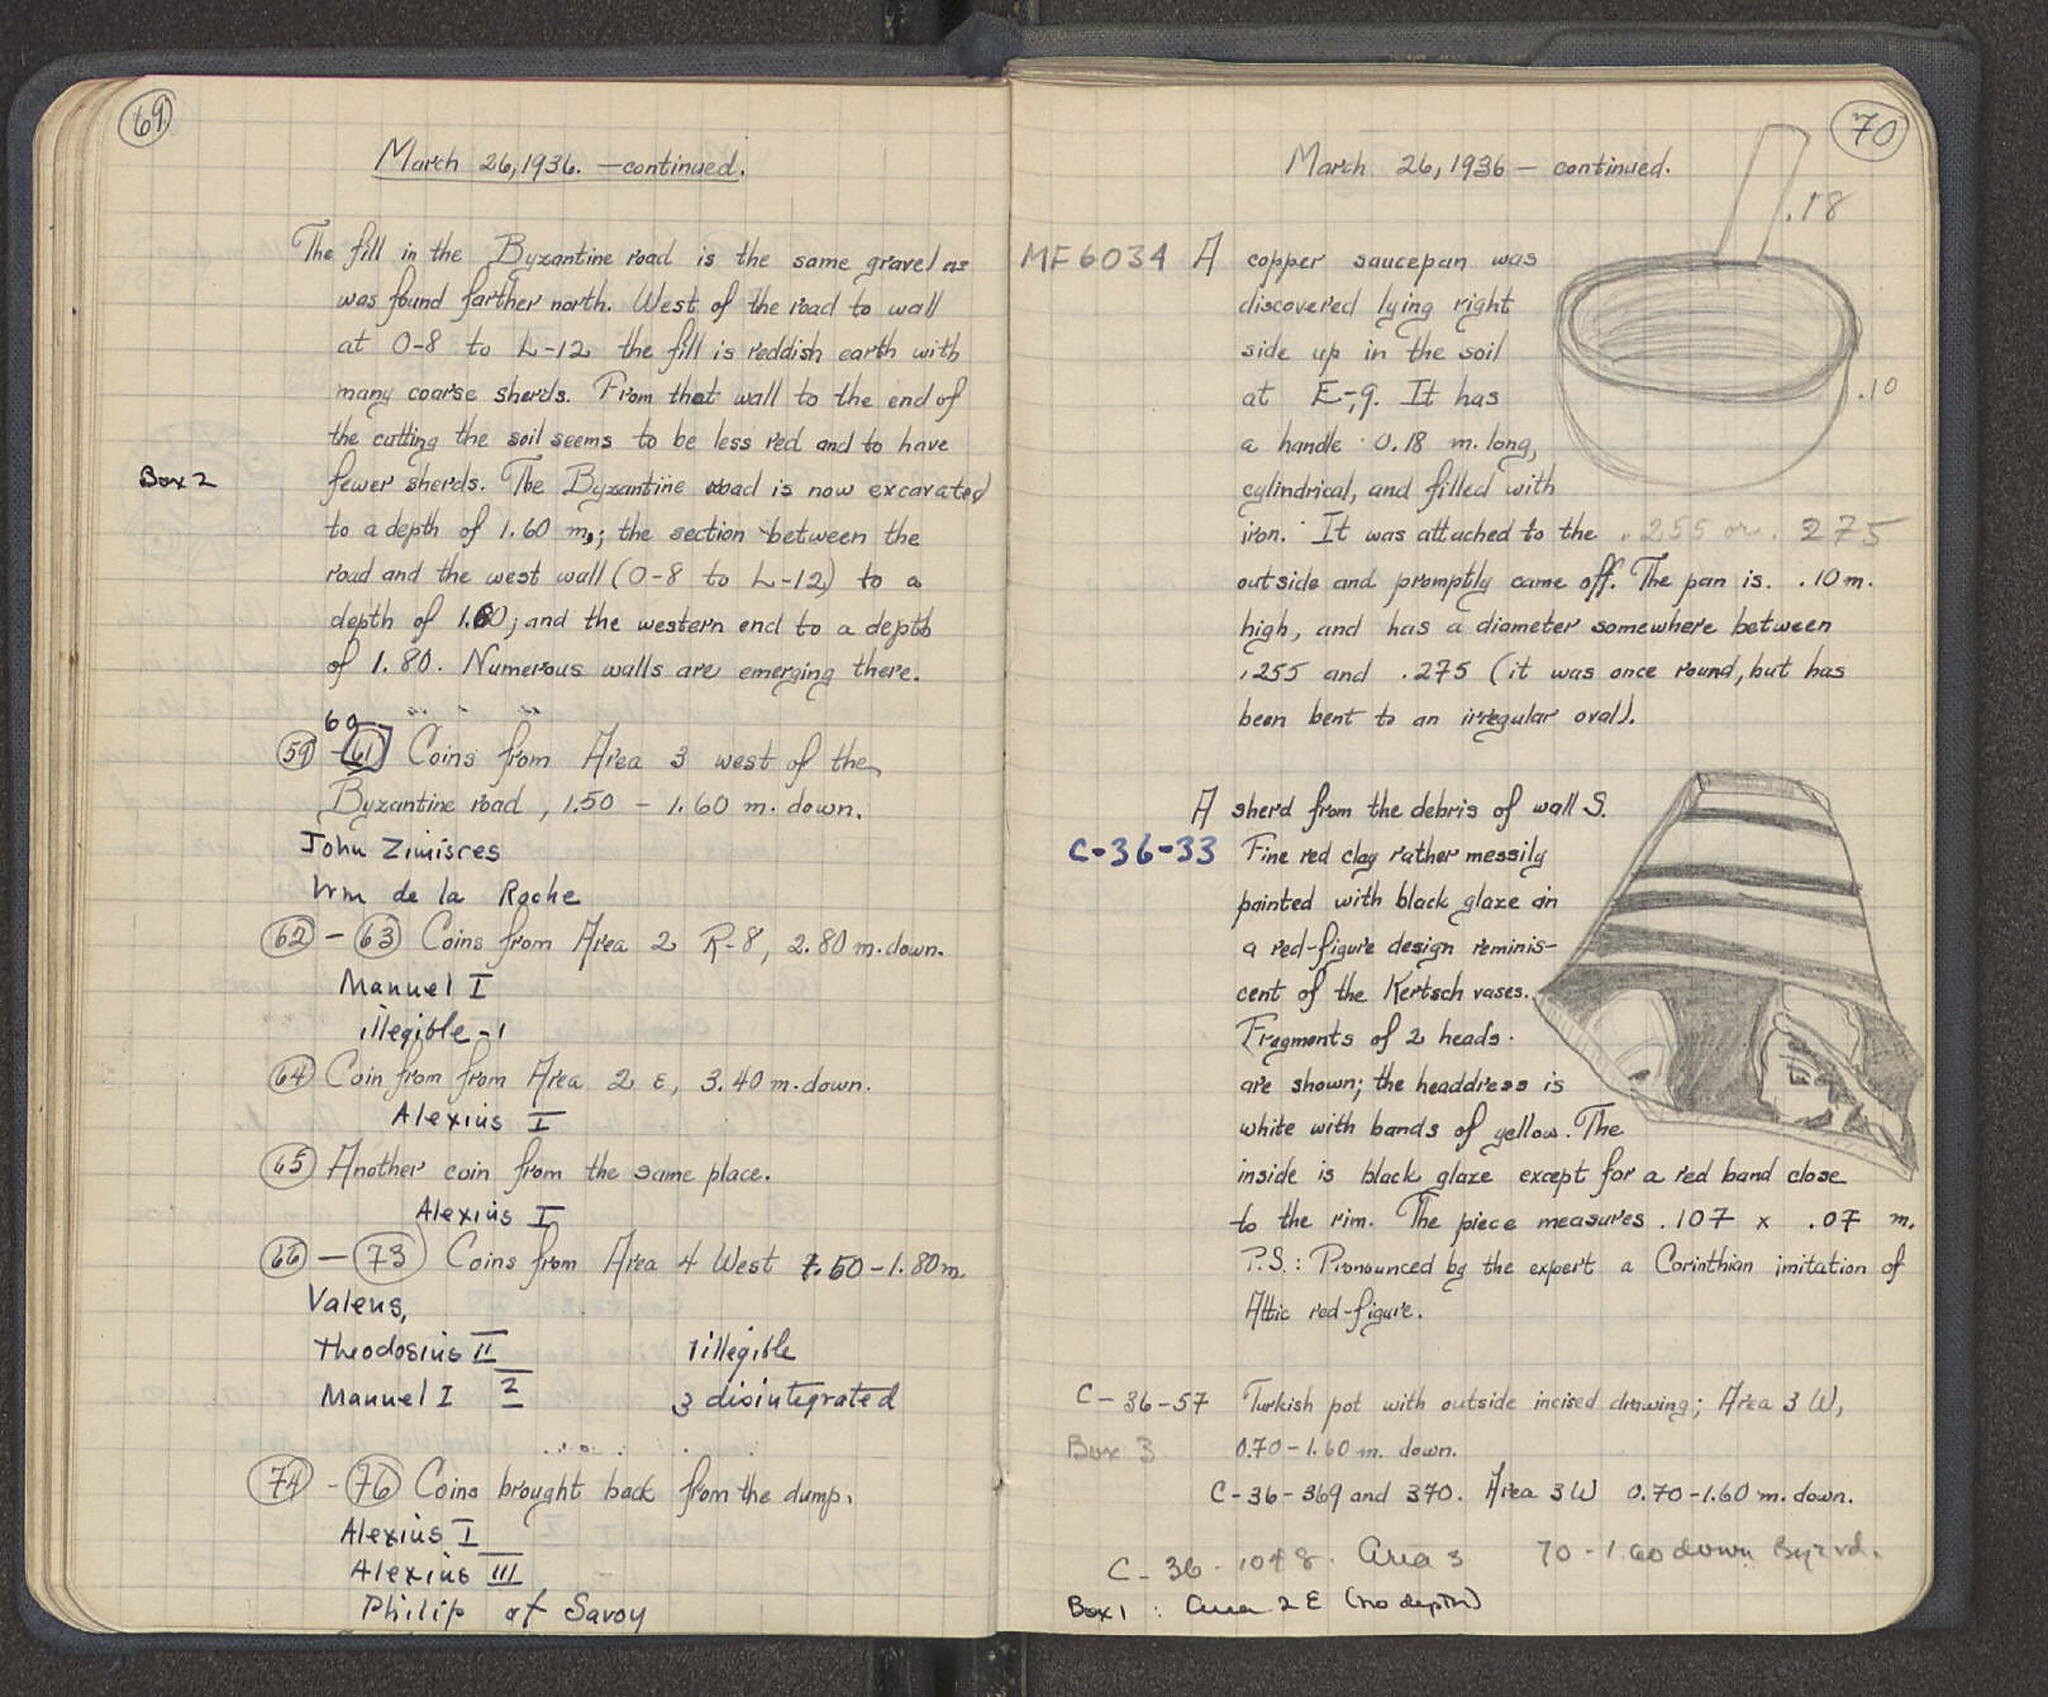 69
March 26, 1936. — continued.
The fill in the Byzantine road is the same gravel as
was found farther north. West of the road to wall
at O-8 to L-12 the fill is reddish earth with
many coarse sherds. From that wall to the end of
the cutting the soil seems to be less red and to have
Box 2
fewer sherds. The Byzantine road is now excavated
to a depth of 1.60 m.; the section between the
road and the west wall (O-8 to L-12) to a
depth of 1.60; and the western end to a depth
of 1.80. Numerous walls are emerging there.
60
59 - 61 Coins from Area 3 west of the
Byzantine road, 1.50 - 1.60 m. down.
John Zimisces
Wm de la Roche
62 - 63 Coins from Area 2 R-8, 2.80 m. down.
Manuel I
illegible - 1
64 Coin from from Area 2 E, 3.40 m. down.
Alexius I
65 Another coin from the same place.
Alexius I
66 - 73 Coins from Area 4 West 1.50 - 1.80 m.
Valens,
Theodosius II 1 illegible
Manuel I 2 3 disintegrated
74 - 76 Coins brought back from the dump.
Alexius I
Alexius III
Philip of Savoy
70
March 26, 1936 — continued.
.18
MF 6034 A copper saucepan was
discovered lying right
side up in the soil
at E-9. It has
.10
a handle 0.18 m. long,
cylindrical, and filled with
iron. It was attached to the
.255 or .275
outside and promptly came off. The pan is .10 m.
high, and has a diameter somewhere between
.255 and .275 (it was once round, but has
been bent to an irregular oval).
A sherd from the debris of wall S.
C-36-33 Fine red clay rather messily
painted with black glaze in
a red-figure design reminis-
cent of the Kertsch vases.
Fragments of 2 heads
are shown; the headdress is
white with bands of yellow. The
inside is black glaze except for a red band close
to the rim. The piece measures .107 x .07 m.
P.S.: Pronounced by the expert a Corinthian imitation of
Attic red-figure.
C-36-57 Turkish pot with outside incised drawing; Area 3 W,
Box 3 0.70 - 1.60 m. down.
C-36-369 and 370. Area 3 W 0.70 - 1.60 m. down.
C-36-1048. Area 3 70 - 1.60 down Byz rd.
Box 1: Area 2 E (no depth)